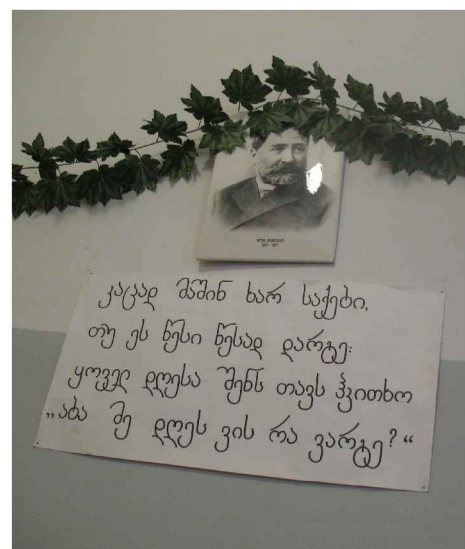 კაცად მაშინ ხარ საქები,
თუ ეს წესი წესად დარგე:
ყოველ დღესა შენს თავს ჰკითხო
„აბა მე დღეს ვის რა ვარგე?“